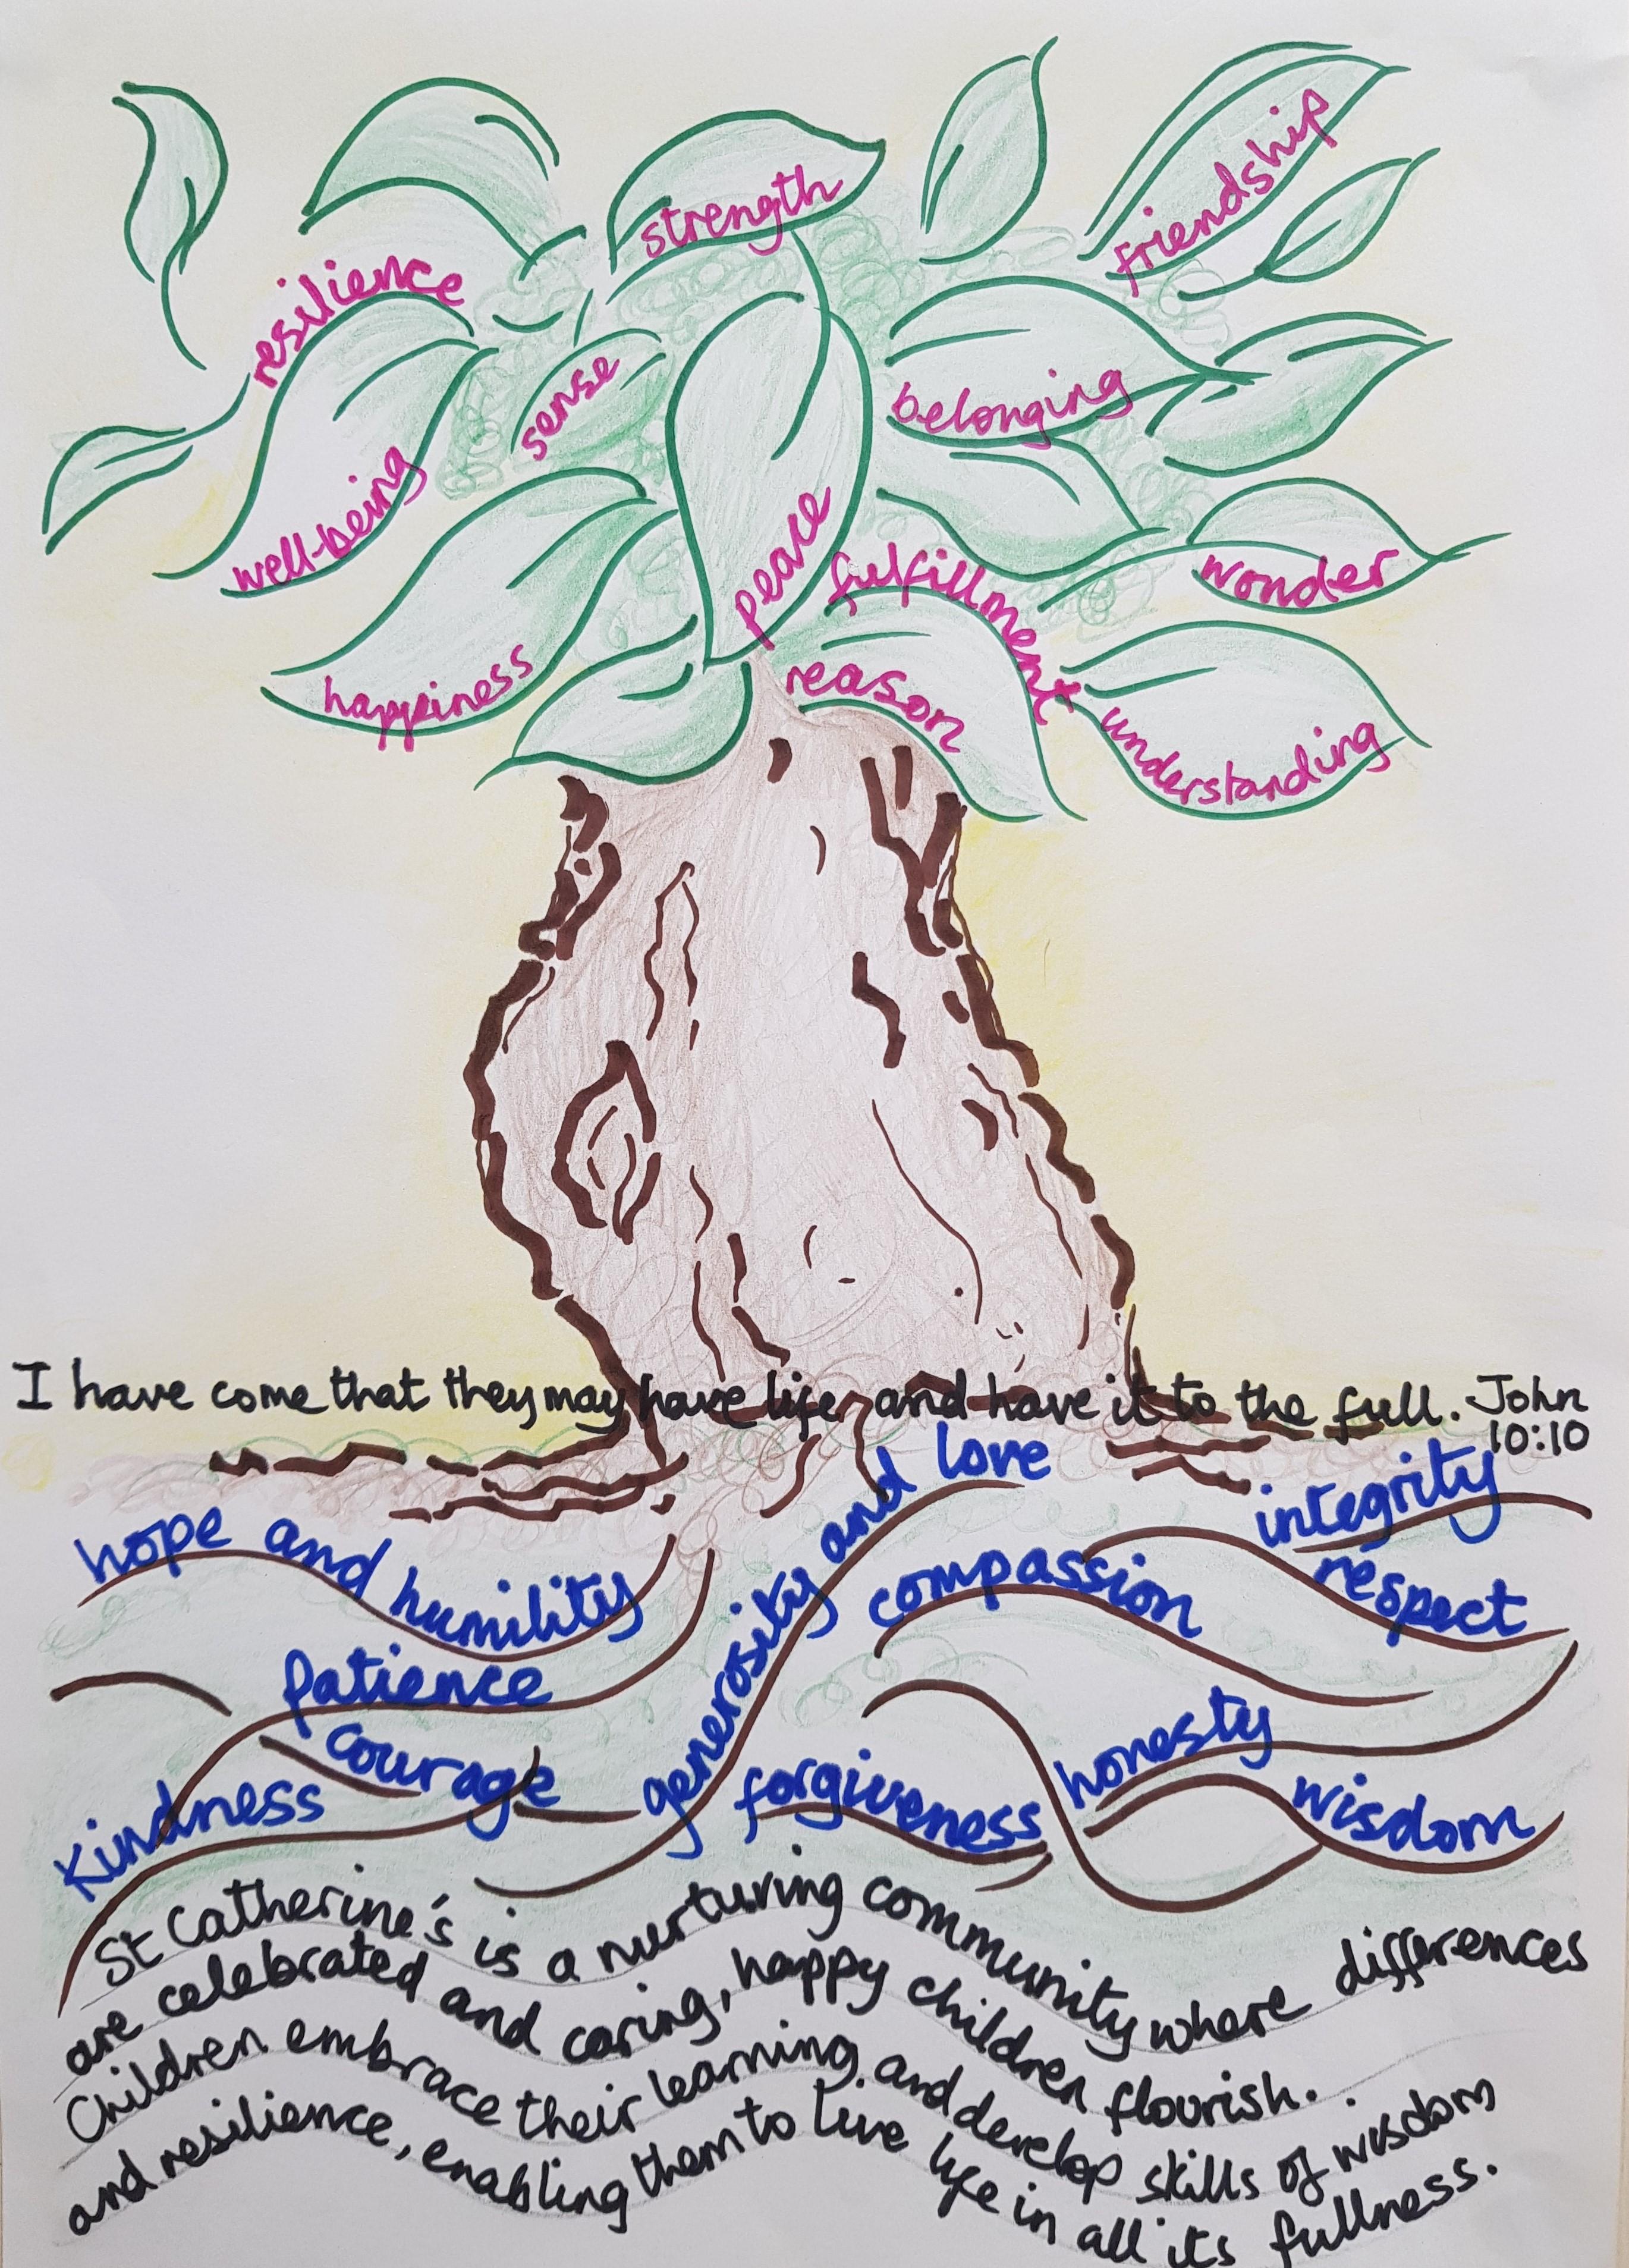 strength
friendship
resilience
sense
belonging
well-being
peace
fulfillment
wonder
happiness
reason
understanding
I have come that they may have life, and have it to the full. John
10:10
hope and humility
generosity and love
integrity
compassion
respect
Patience
courage
Kindness
forgiveness
honesty
wisdom
St Catherine's is a nurturing community where differences
are celebrated and caring, happy children flourish.
Children embrace their learning and develop skills of wisdom
and resilience, enabling them to live life in all its fullness.